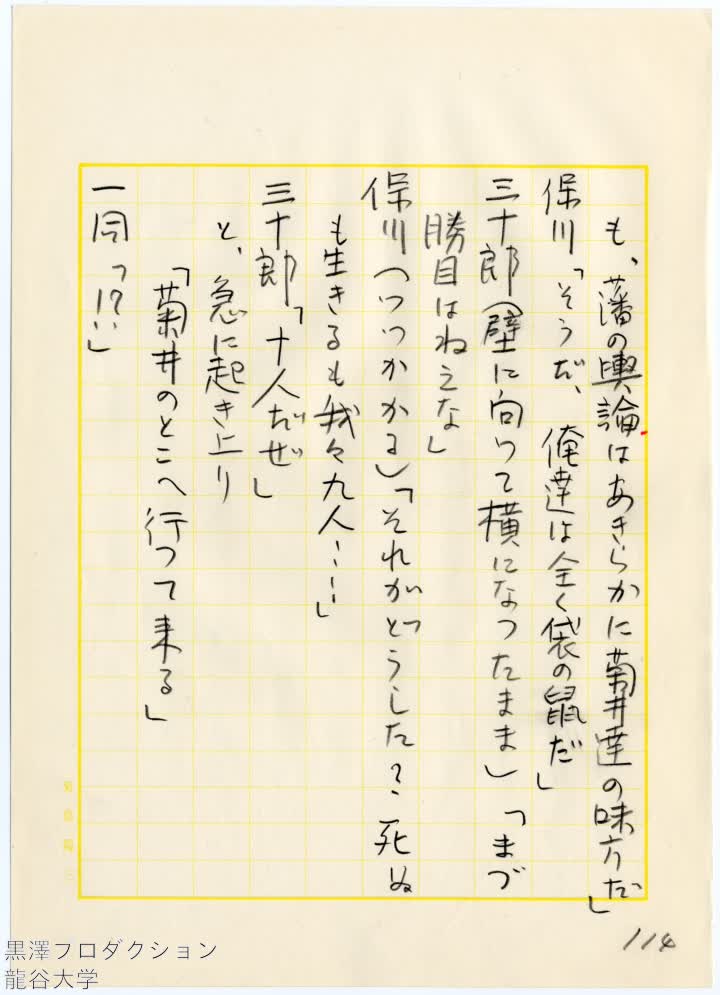 も、藩の輿論はあきらかに菊井達の味方だ」
保川「そうだ、俺達は全く袋の鼠だ」
三十郎（壁に向つて横になつたまま）「まづ
勝目はねえな」
保川（つつかかる）「それがどうした？死ぬ
も生きるも我々九人……」
三十郎「十人だぜ」
と、急に起き上り
「菊井のとこへ行つて来る」
一同「!?……」
114
黒澤プロダクション
龍谷大学